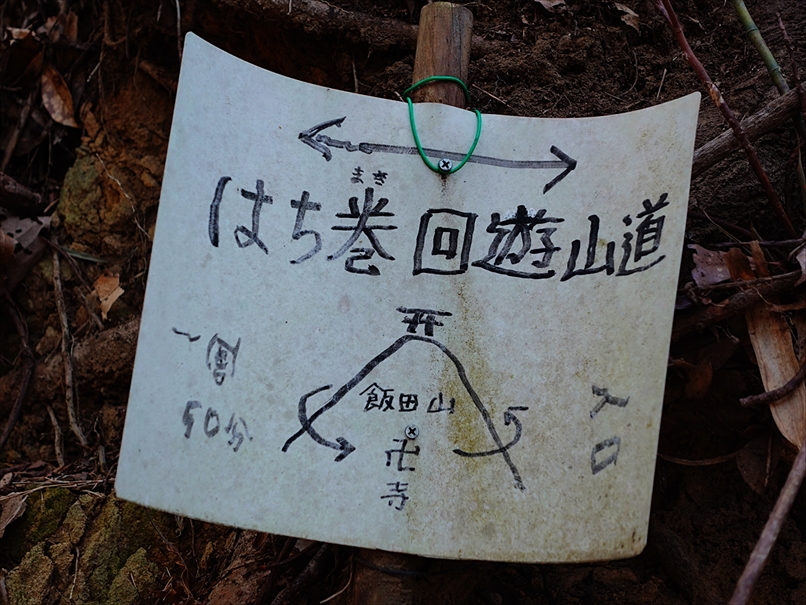 まき
はち巻回遊山道
飯田山
卍
寺
50分
入口